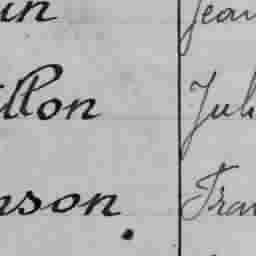 in Jean
illon Juli
nson. Fran